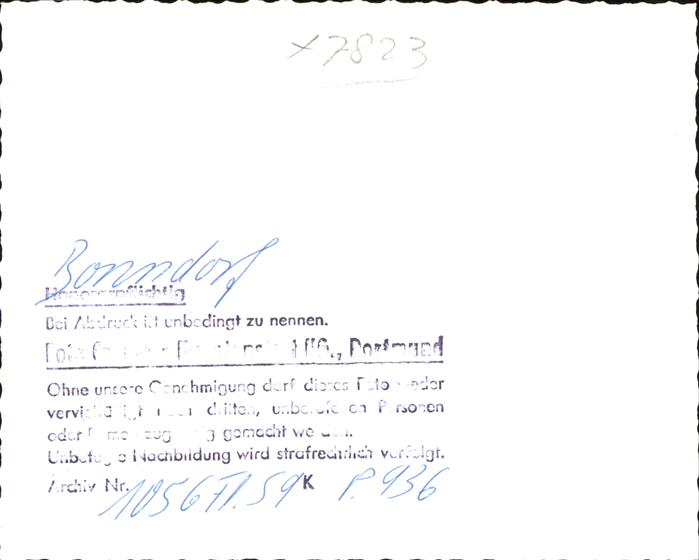 x7823
Bonndorf
Honorarpflichtig
Bei Abdruck ist unbedingt zu nennen.
Foto KG., Dortmund
Ohne unsere Genehmigung darf dieses Foto weder
vervielfältigt noch dritten, unberufenen Personen
oder Firmen zugängig gemacht werden.
Unbefugte Nachbildung wird strafrechtlich verfolgt.
Archiv Nr. K P. 936